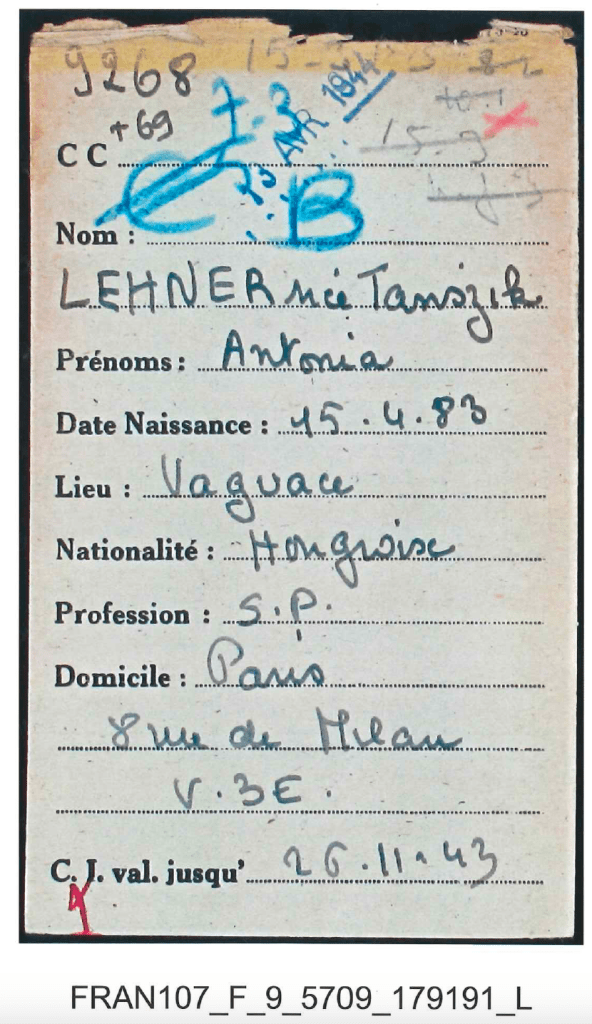 9268
+69
7.3
AVR 1944
15.9
CC
B
Nom :
LEHNER née Tanszik
Prénoms : Antonia
Date Naissance : 15.4.83
Lieu : Vaguace
Nationalité : Hongroise
Profession : S.P.
Domicile : Paris
8 rue de Milan
V.3E.
C. I. val. jusqu' 26.11.43
FRAN107_F_9_5709_179191_L